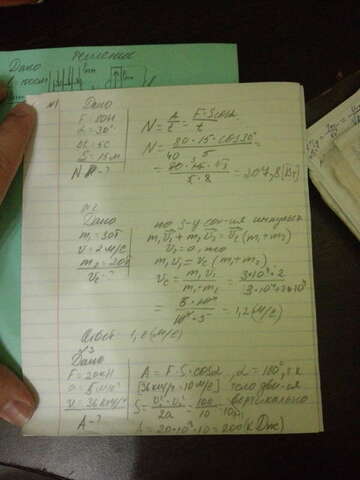 Решение
Дано
№1 Дано
F = 80Н
α = 30°
Δt = 5с
S = 15м
N - ?
N = A/t = F·Scosα/t
N = 80·15·cos30°/5 =
= 207,8 (Вт)
Дано
m₁ = 30т
v = 2 м/с
m₂ = 20т
vc - ?
по з-у сох-ия импульса
m₁v₁ + m₂v₂ = vc (m₁ + m₂)
v₂ = 0, то
m₁v₁ = vc (m₁ + m₂)
vc = m₁v₁/m₁ + m₂ =
= 1,2 (м/с)
Ответ 1,2 (м/с)
Дано
F = 20кН
a = 5 м/с²
v = 36км/ч
A - ?
A = F S·cosα, α = 180°, т.к
[36км/ч = 10м/с] тело дви-ся
вертикально
S = v² - v₀²/2a = 100/10 = 10м
A = 20·10³·10 = 200 (кДж)